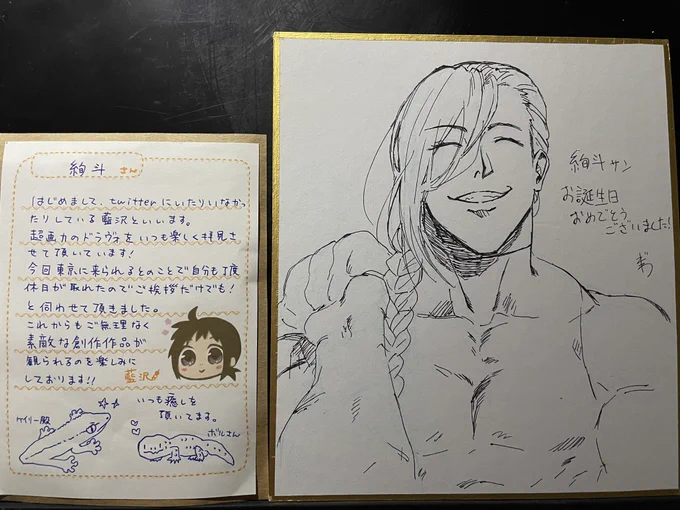 絢斗 さん
はじめまして、twitterにいたりいなかっ
たりしている藍沢といいます。
超画力のドラヴォをいつも楽しく拝見さ
せて頂いています!
今回東京に来られるとのことで自分も丁度
休日が取れたのでご挨拶だけでも!
と伺わせて頂きました。
これからもご無理なく
素敵な創作作品が
観られるのを楽しみに
しております!!
藍沢
いつも癒しを
頂いてます。
ケイリー殿
ボルさん
絢斗サン
お誕生日
おめでとう
ございました!